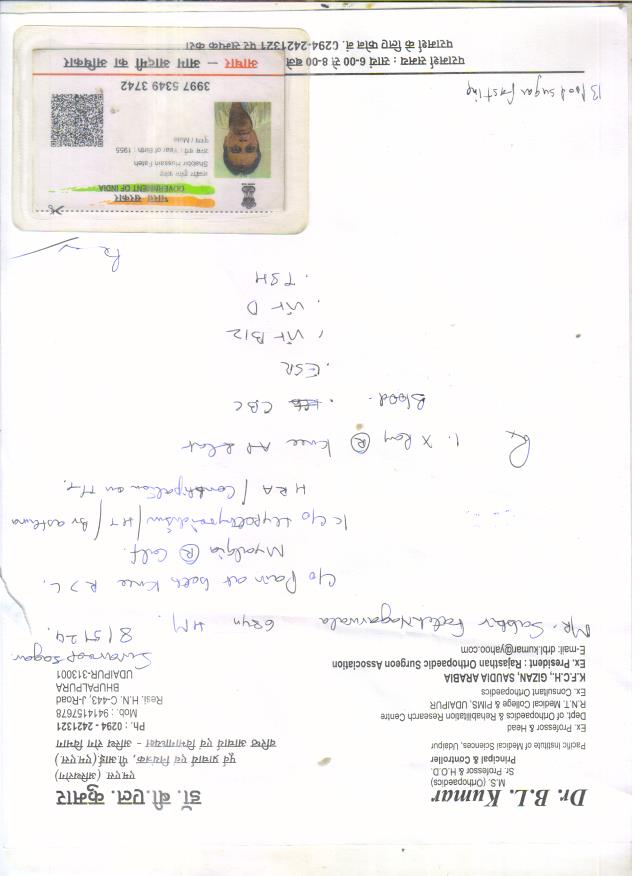 Dr. B.L. Kumar
M.S. (Orthopaedics)
Sr. Professor & H.O.D.
Principal & Controller
Pacific Institute of Medical Sciences, Udaipur
Ex. Professor & Head
Dept. of Orthopaedics & Rehabilitation Research Centre
R.N.T. Medical College & PIMS, UDAIPUR
Ex. Consultant Orthopaedics
K.F.C.H., GIZAN, SAUDIA ARABIA
Ex. President : Rajasthan Orthopaedic Surgeon Association
E-mail: drblkumar@yahoo.com
डॉ. बी.एल. कुमार
एम.एस. (अस्थिशल्य)
पूर्व प्राचार्य एवं नियंत्रक, पी.आई.(एम.एस.)
वरिष्ठ आचार्य एवं विभागाध्यक्ष - अस्थि रोग विभाग
Ph. : 0294 - 2421321
Mob. : 9414157678
Resi. H.N. C-443, J-Road
BHUPALPURA
UDAIPUR-313001
Swaroop sagar
Mr. Sabbir Nagarwala 68yr HM 8/5/24
C/o Pain at both Knee R > L.
Myalgia (R) Calf.
K C/o Hypothyroidism / HT / Br asthma
HRA / Constipation on Tt.
Rx
1. X Ray (R) Knee AP & Lat
Blood. . CBC
. ESR
. Vit B12
. Vit D
. TSH
भारत सरकार
GOVERNMENT OF INDIA
Shabbir Hussain Fateh
जन्म वर्ष / Year of Birth : 1955
पुरुष / Male
3997 5349 3742
आधार – आम आदमी का अधिकार
Blood sugar fasting
परामर्श समय : सायं 6-00 से 8-00 बजे
परामर्श के लिए फोन नं. 0294-2421321 पर सम्पर्क करें